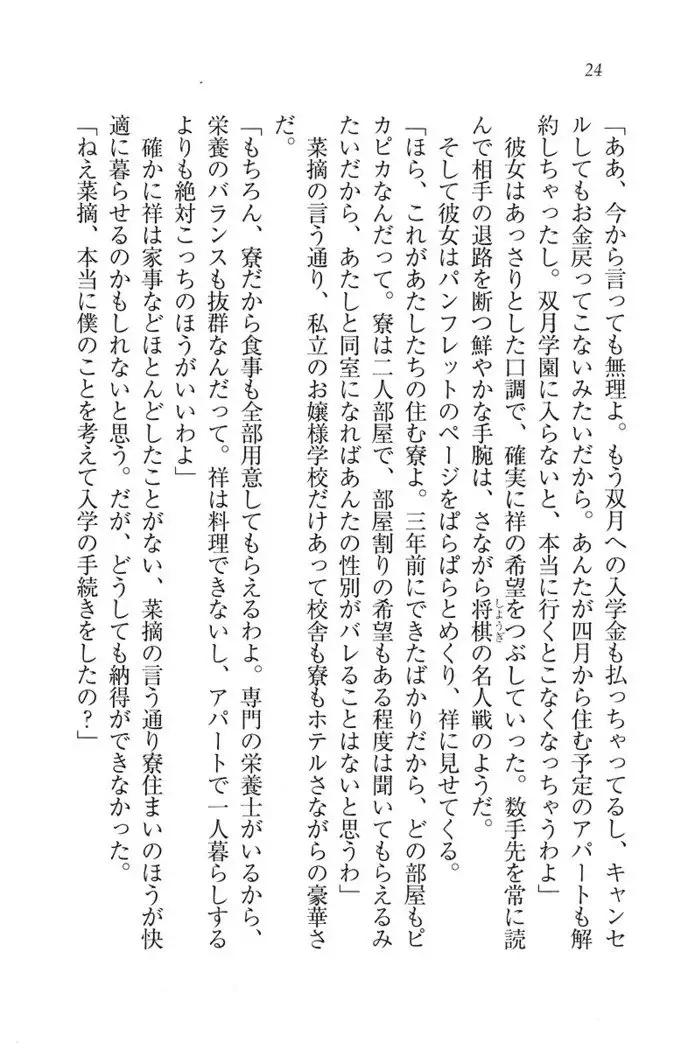 24
「ああ、今から言っても無理よ。もう双月への入学金も払っちゃってるし、キャンセ
ルしてもお金戻ってこないみたいだから。あんたが四月から住む予定のアパートも解
約しちゃったし。双月学園に入らないと、本当に行くとこなくなっちゃうわよ」
彼女はあっさりとした口調で、確実に祥の希望をつぶしていった。数手先を常に読
んで相手の退路を断つ鮮やかな手腕は、さながら将棋の名人戦のようだ。
しようぎ
そして彼女はパンフレットのページをぱらぱらとめくり、祥に見せてくる。
「ほら、これがあたしたちの住む寮よ。三年前にできたばかりだから、どの部屋もピ
カピカなんだって。寮は二人部屋で、部屋割りの希望もある程度は聞いてもらえるみ
たいだから、あたしと同室になればあんたの性別がバレることはないと思うわ」
菜摘の言う通り、私立のお嬢様学校だけあって校舎も寮もホテルさながらの豪華さ
だ。
「もちろん、寮だから食事も全部用意してもらえるわよ。専門の栄養士がいるから、
栄養のバランスも抜群なんだって。祥は料理できないし、アパートで一人暮らしする
よりも絶対こっちのほうがいいわよ」
確かに祥は家事などほとんどしたことがない、菜摘の言う通り寮住まいのほうが快
適に暮らせるのかもしれないと思う。だが、どうしても納得ができなかった。
「ねえ菜摘、本当に僕のことを考えて入学の手続きをしたの？」